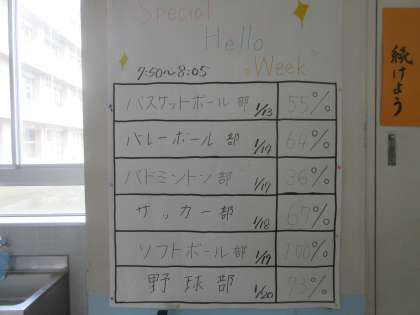 Special
Hello
Week
7:50~8:05
バスケットボール部 1/13 55%
バレーボール部 1/14 64%
バドミントン部 1/17 36%
サッカー部 1/18 67%
ソフトボール部 1/19 100%
野球部 1/20 73%
続けよう